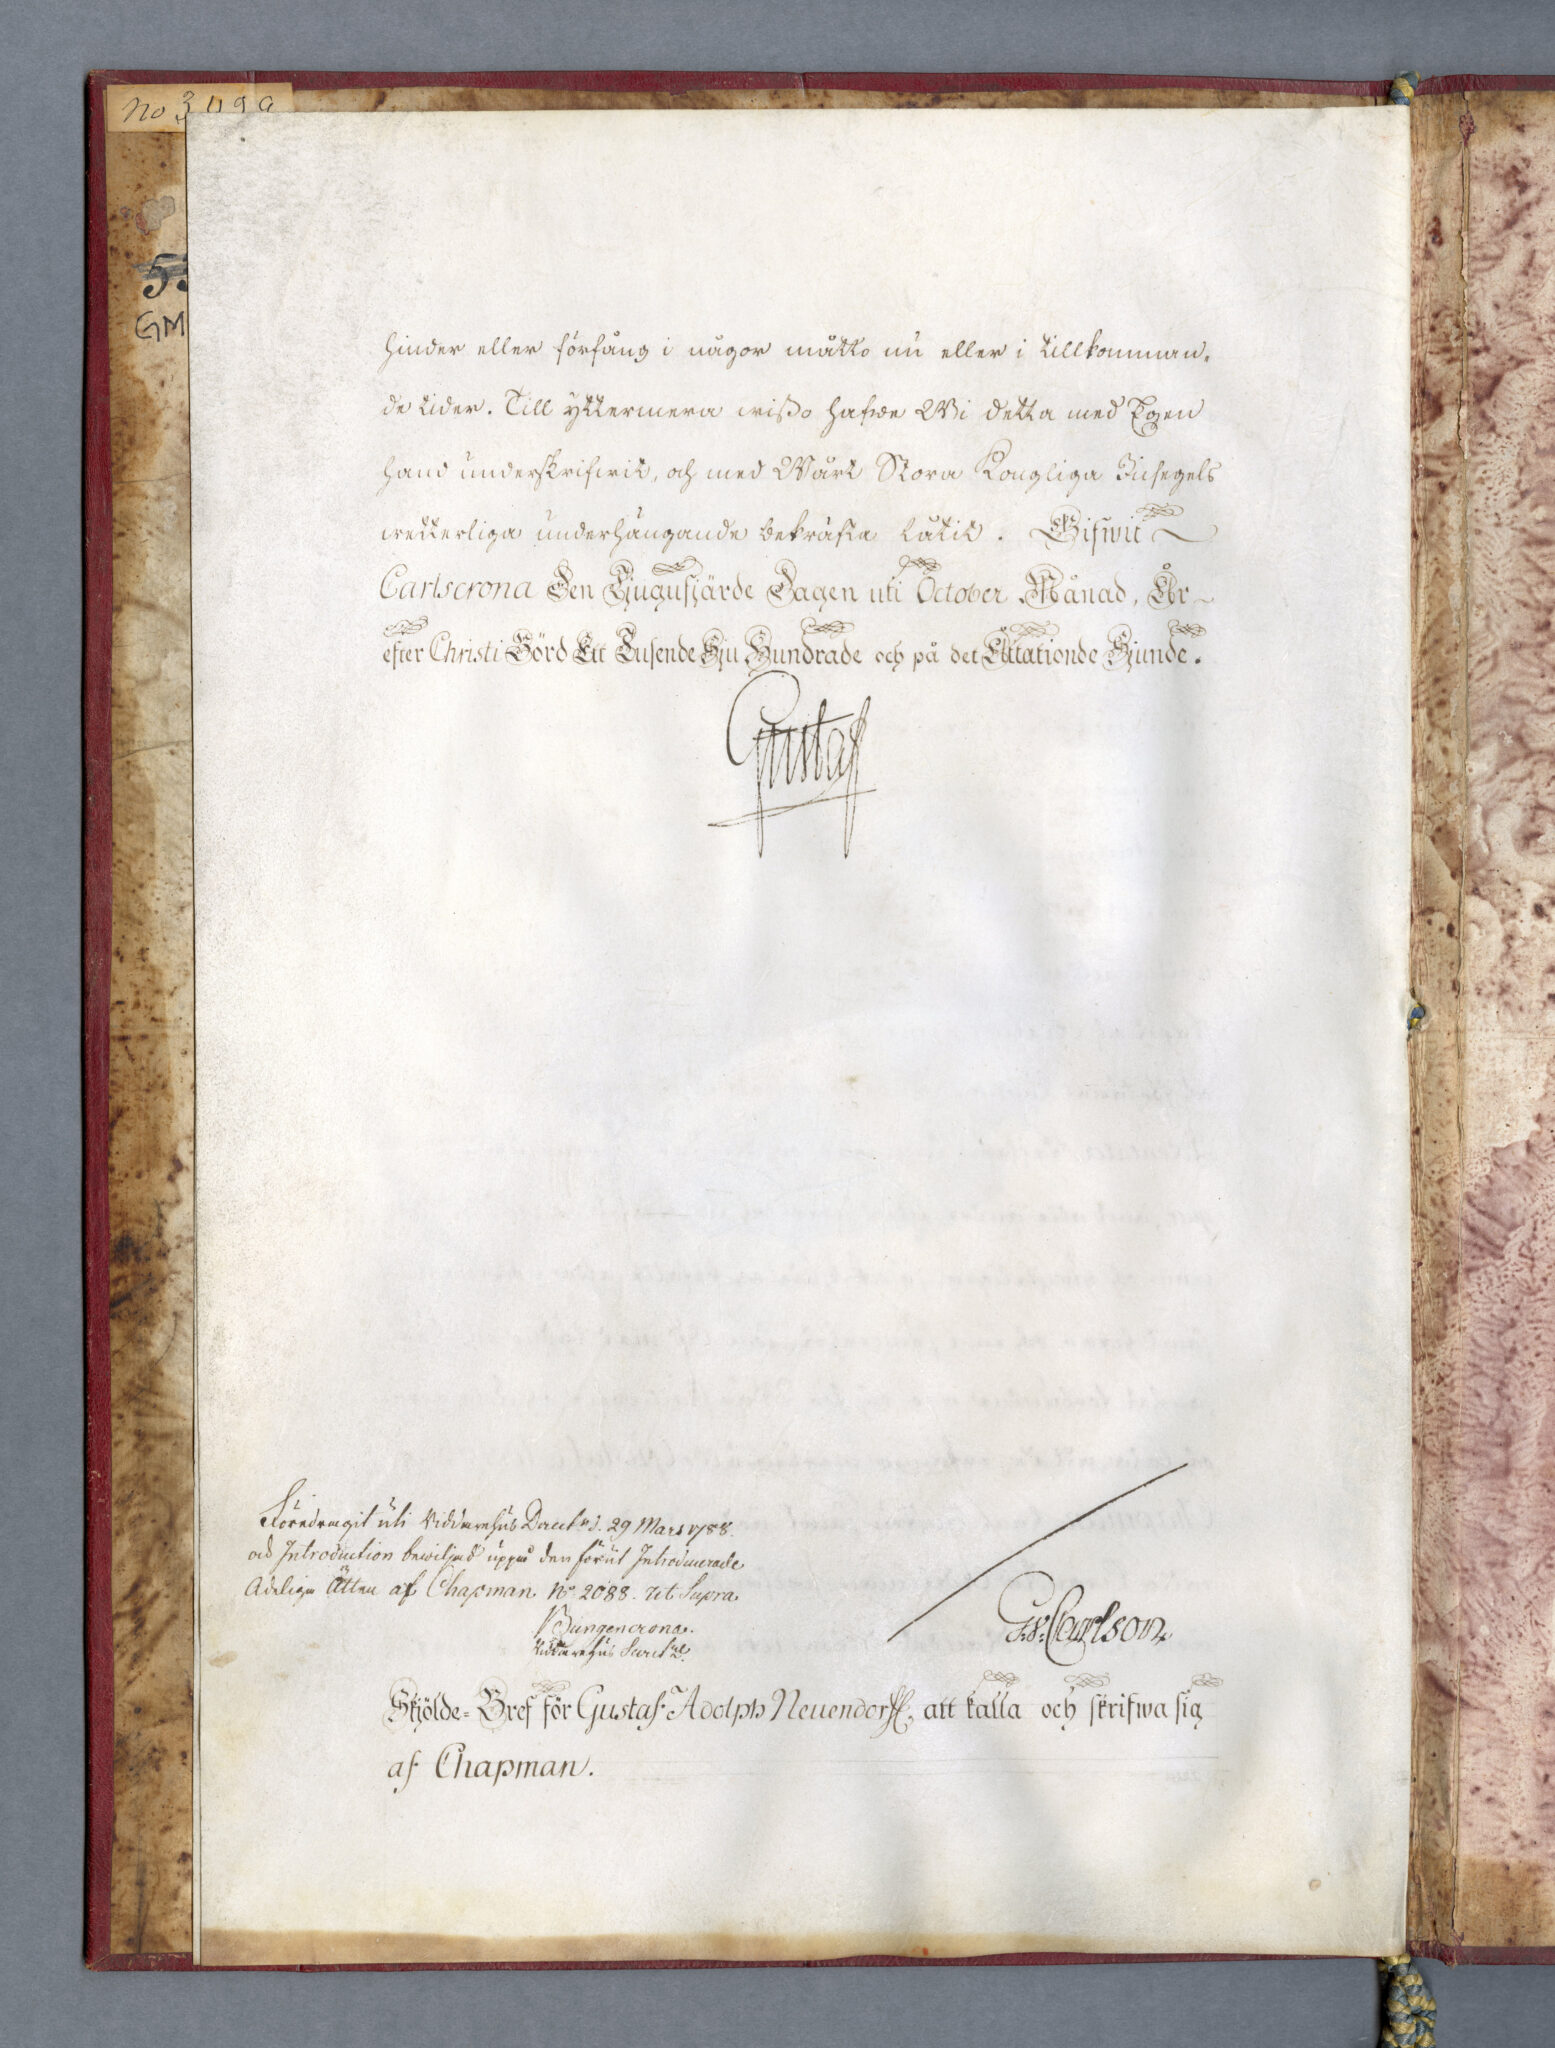 No 3499
GM
hinder eller förfång i någor måtto nu eller i tillkomman-
de tider. Till yttermera wißo hafwe Wi detta med Egen
hand underskrifwit, och med Wårt Stora Kongliga Insegels
wetterliga underhängande bekräfta låtit. Gifwit
Carlscrona Den Tjugufjärde Dagen uti October Månad, År
efter Christi Börd Ett Tusende Sju Hundrade och på det Åttationde Sjunde.
Gustaf
Föredragit uti Riddarehus Direct.n d. 29 Mars 1788.
och Introduction bewiljad uppå den förut Introducerade
Adeliga Ätten af Chapman No 2088. Ut Supra
Bungencrona.
Riddarehus Secret.
G. v. Carlson
Skjölde-Bref för Gustaf Adolph Neuendorff, att kalla och skrifwa sig
af Chapman.